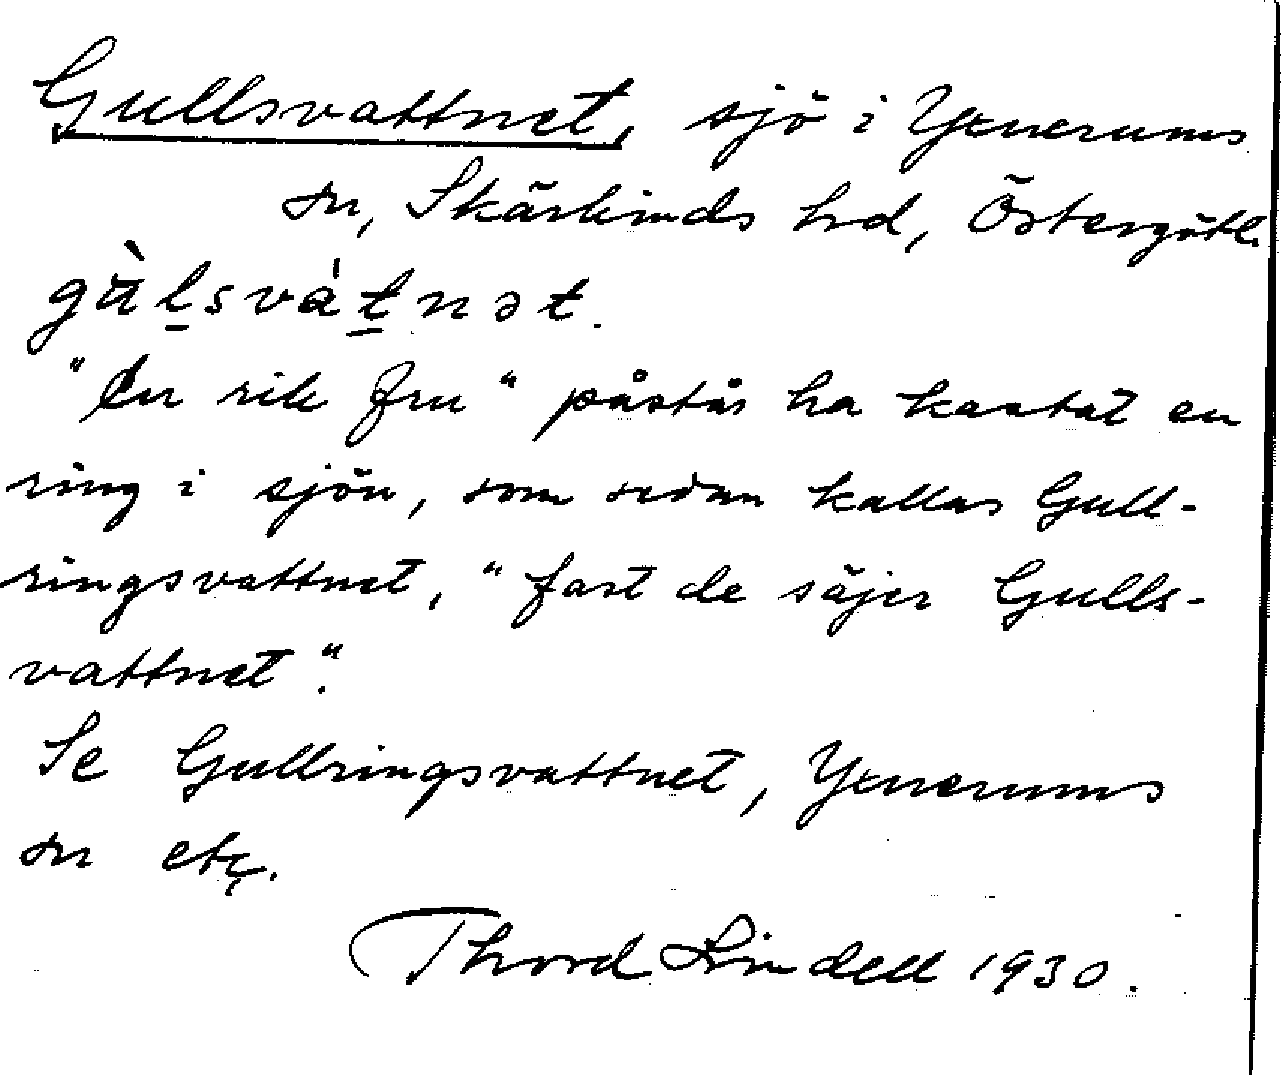 Gullsvattnet, sjö i Yxnerums
sn, Skärkinds hd, Östergötl.
gu̇̀l̠svàt̠nət.
"En rik fru" påstås ha kastat en
ring i sjön, som sedan kallas Gull-
ringsvattnet, "fast de säjer Gulls-
vattnet".
Se Gullringsvattnet, Yxnerums
sn etc.
Thord Lindell 1930.